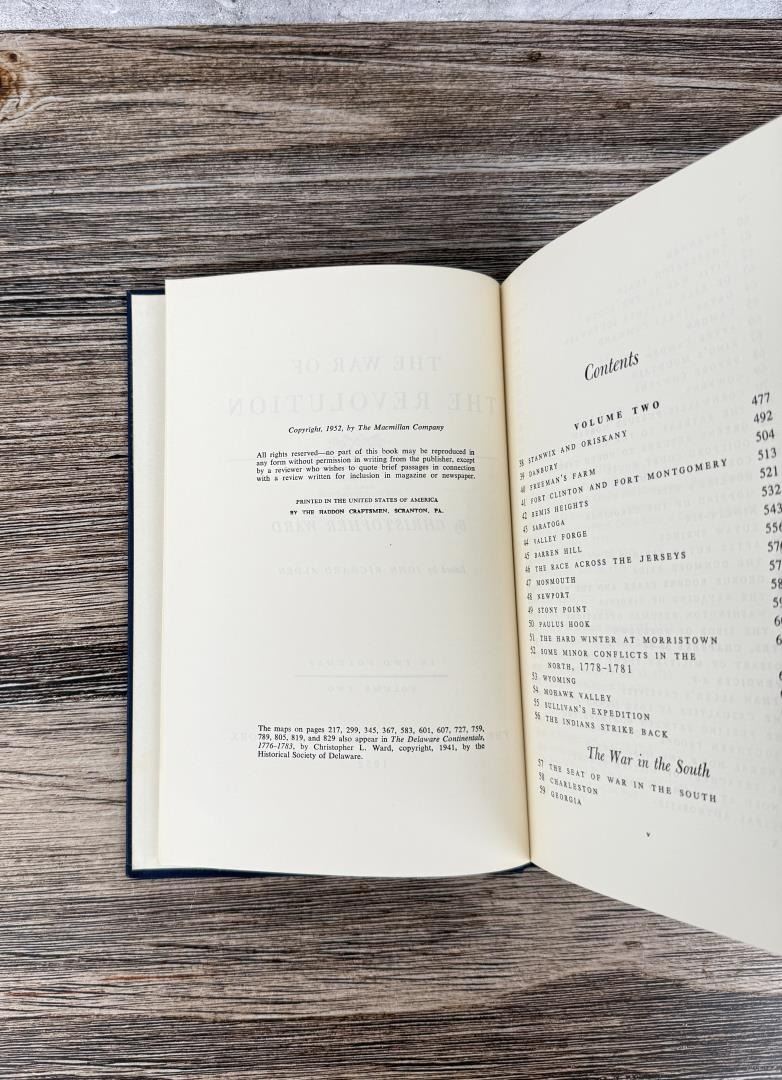 Copyright, 1952, by The Macmillan Company
All rights reserved—no part of this book may be reproduced in
any form without permission in writing from the publisher, except
by a reviewer who wishes to quote brief passages in connection
with a review written for inclusion in magazine or newspaper.
PRINTED IN THE UNITED STATES OF AMERICA
BY THE HADDON CRAFTSMEN, SCRANTON, PA.
The maps on pages 217, 299, 345, 367, 583, 601, 607, 727, 759,
789, 805, 819, and 829 also appear in The Delaware Continentals,
1776–1783, by Christopher L. Ward, copyright, 1941, by the
Historical Society of Delaware.
Contents
VOLUME TWO
38 STANWIX AND ORISKANY 477
39 DANBURY 492
40 FREEMAN'S FARM 504
41 FORT CLINTON AND FORT MONTGOMERY 513
42 BEMIS HEIGHTS 521
43 SARATOGA 532
44 VALLEY FORGE 543
45 BARREN HILL 556
46 THE RACE ACROSS THE JERSEYS
47 MONMOUTH
48 NEWPORT
49 STONY POINT
50 PAULUS HOOK
51 THE HARD WINTER AT MORRISTOWN
52 SOME MINOR CONFLICTS IN THE
NORTH, 1778–1781
53 WYOMING
54 MOHAWK VALLEY
55 SULLIVAN'S EXPEDITION
56 THE INDIANS STRIKE BACK
The War in the South
57 THE SEAT OF WAR IN THE SOUTH
58 CHARLESTON
59 GEORGIA
v